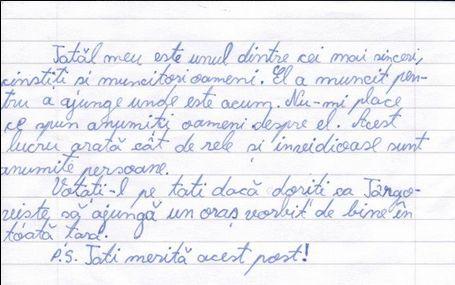 Tatăl meu este unul dintre cei mai sinceri,
cinstiți și muncitori oameni. El a muncit pen-
tru a ajunge unde este acum. Nu-mi place
ce spun anumiți oameni despre el. Acest
lucru arată cât de rele și invidioase sunt
anumite persoane.
Votați-l pe tati dacă doriti ca Târgo-
viște să ajungă un oraș vorbit de bine în
toată țara.
P.S. Tati merită acest post!